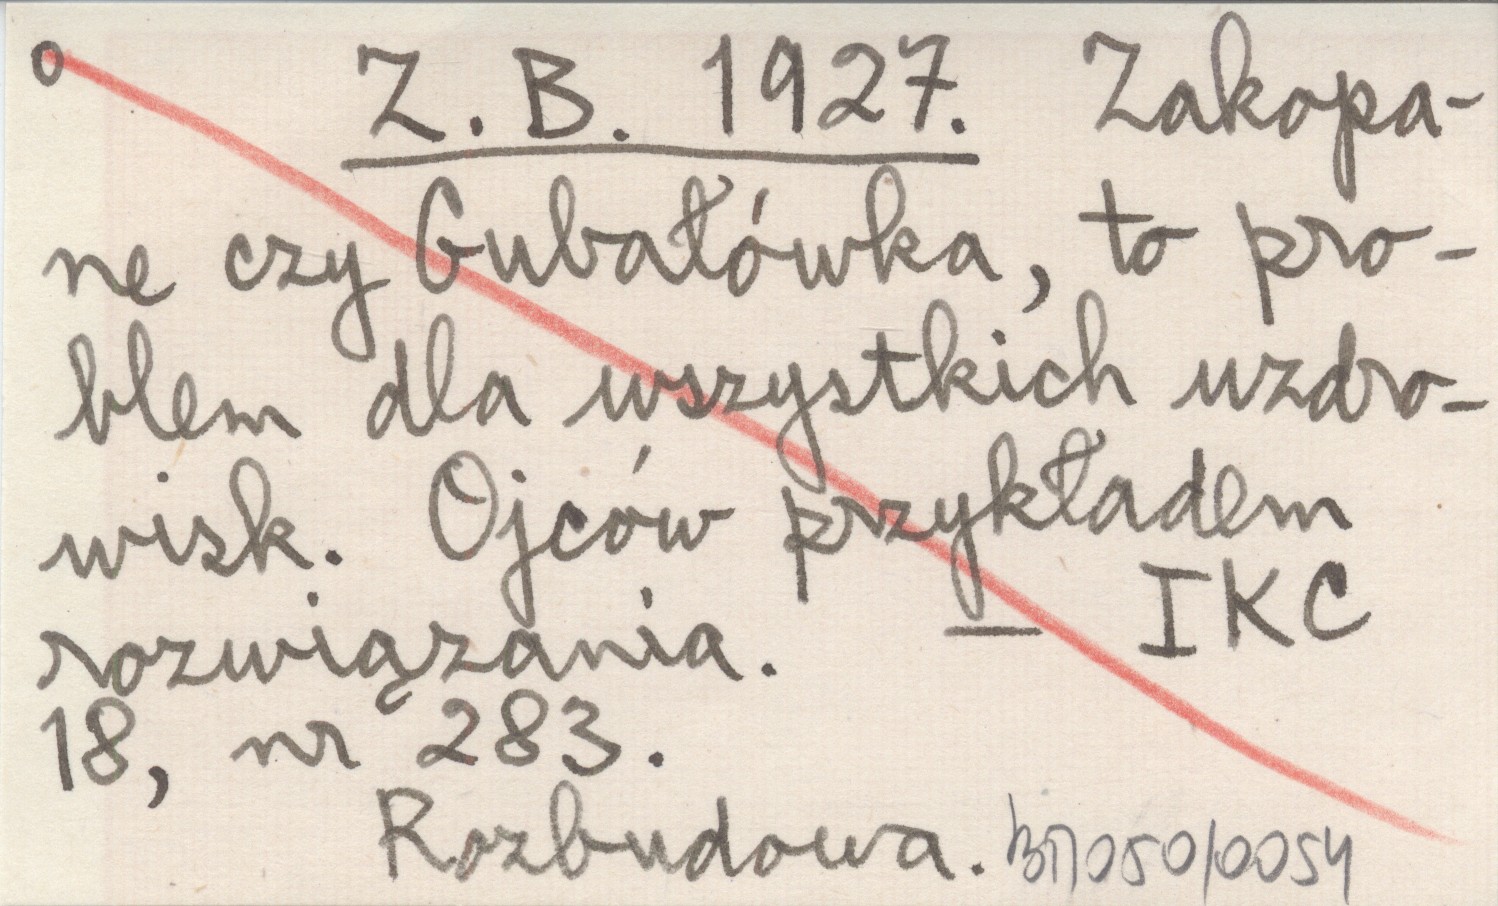 o Z. B. 1927. Zakopa-
ne czy Gubałówka, to pro-
blem dla wszystkich uzdro-
wisk. Ojców przykładem
rozwiązania. — IKC
18, nr 283.
Rozbudowa. BN050/0054